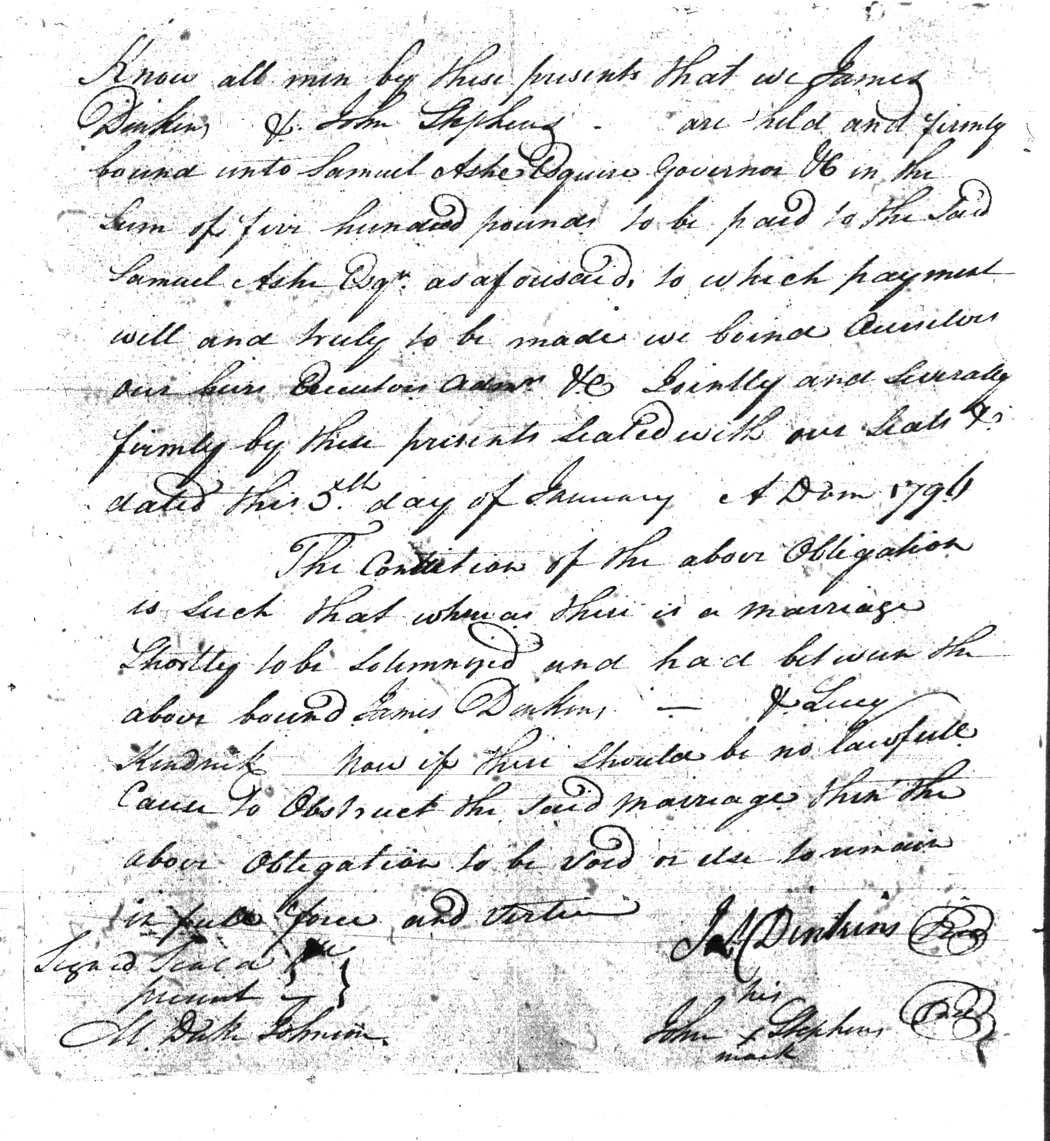 Know all men by these presents that we James
Dinkins & John Stephens - are held and firmly
bound unto Samuel Ashe Esquire Governor &C in the
Sum of five hundred pounds to be paid to the Said
Samuel Ashe Esqr. as aforesaid, to which payment
will and truly to be made we boind Ourselves
our heirs Executors Admrs &C Jointly and Severally
firmly by these presents Sealed with our Seals &c
dated this 5th. day of January A Dom 1796
The Condition of the above Obligation
is Such that whereas there is a marriage
Shortly to be Solemnized and had between the
above bound James Dinkins — & Lucy
Kindrick Now if there Should be no lawfull
Cause to Obstruct the said marriage then the
above Obligation to be void or else to remain
in full force and virtue
Jas Dinkins Seal
Signed Seald
present
his
M. Duke Johnson. John x Stephens Seal
mark